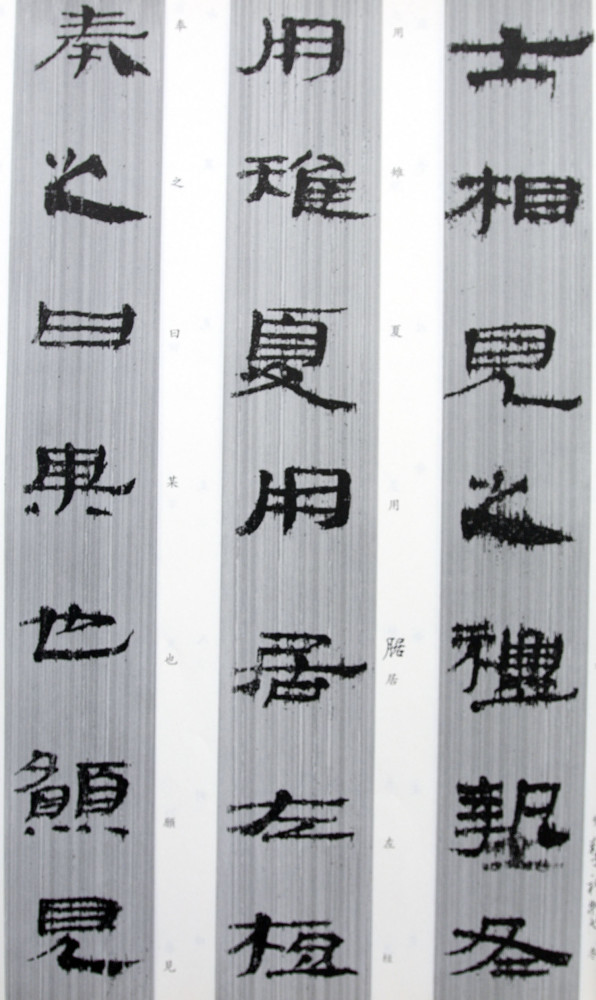 士相見之禮摯冬
用雉夏用居左梪
用雉夏用腒居左梪
奉之曰某也願見
奉之曰某也願見